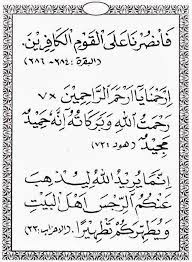 فَانْصُرْنَا عَلَى الْقَوْمِ الْكَافِرِينَ.
(البقرة: ٢٨٤-٢٨٦)
اِرْحَمْنَا يَا اَرْحَمَ الرَّاحِمِينَ ×٧
رَحْمَتُ اللهِ وَبَرَكَاتُهُ اِنَّهُ حَمِيْدٌ
مَجِيْدٌ (هود: ٧٣)
اِنَّمَا يُرِيْدُ اللهُ لِيُذْهِبَ
عَنْكُمُ الرِّجْسَ اَهْلَ الْبَيْتِ
وَيُطَهِّرَكُمْ تَطْهِيْرًا (الاحزاب: ٣٣)